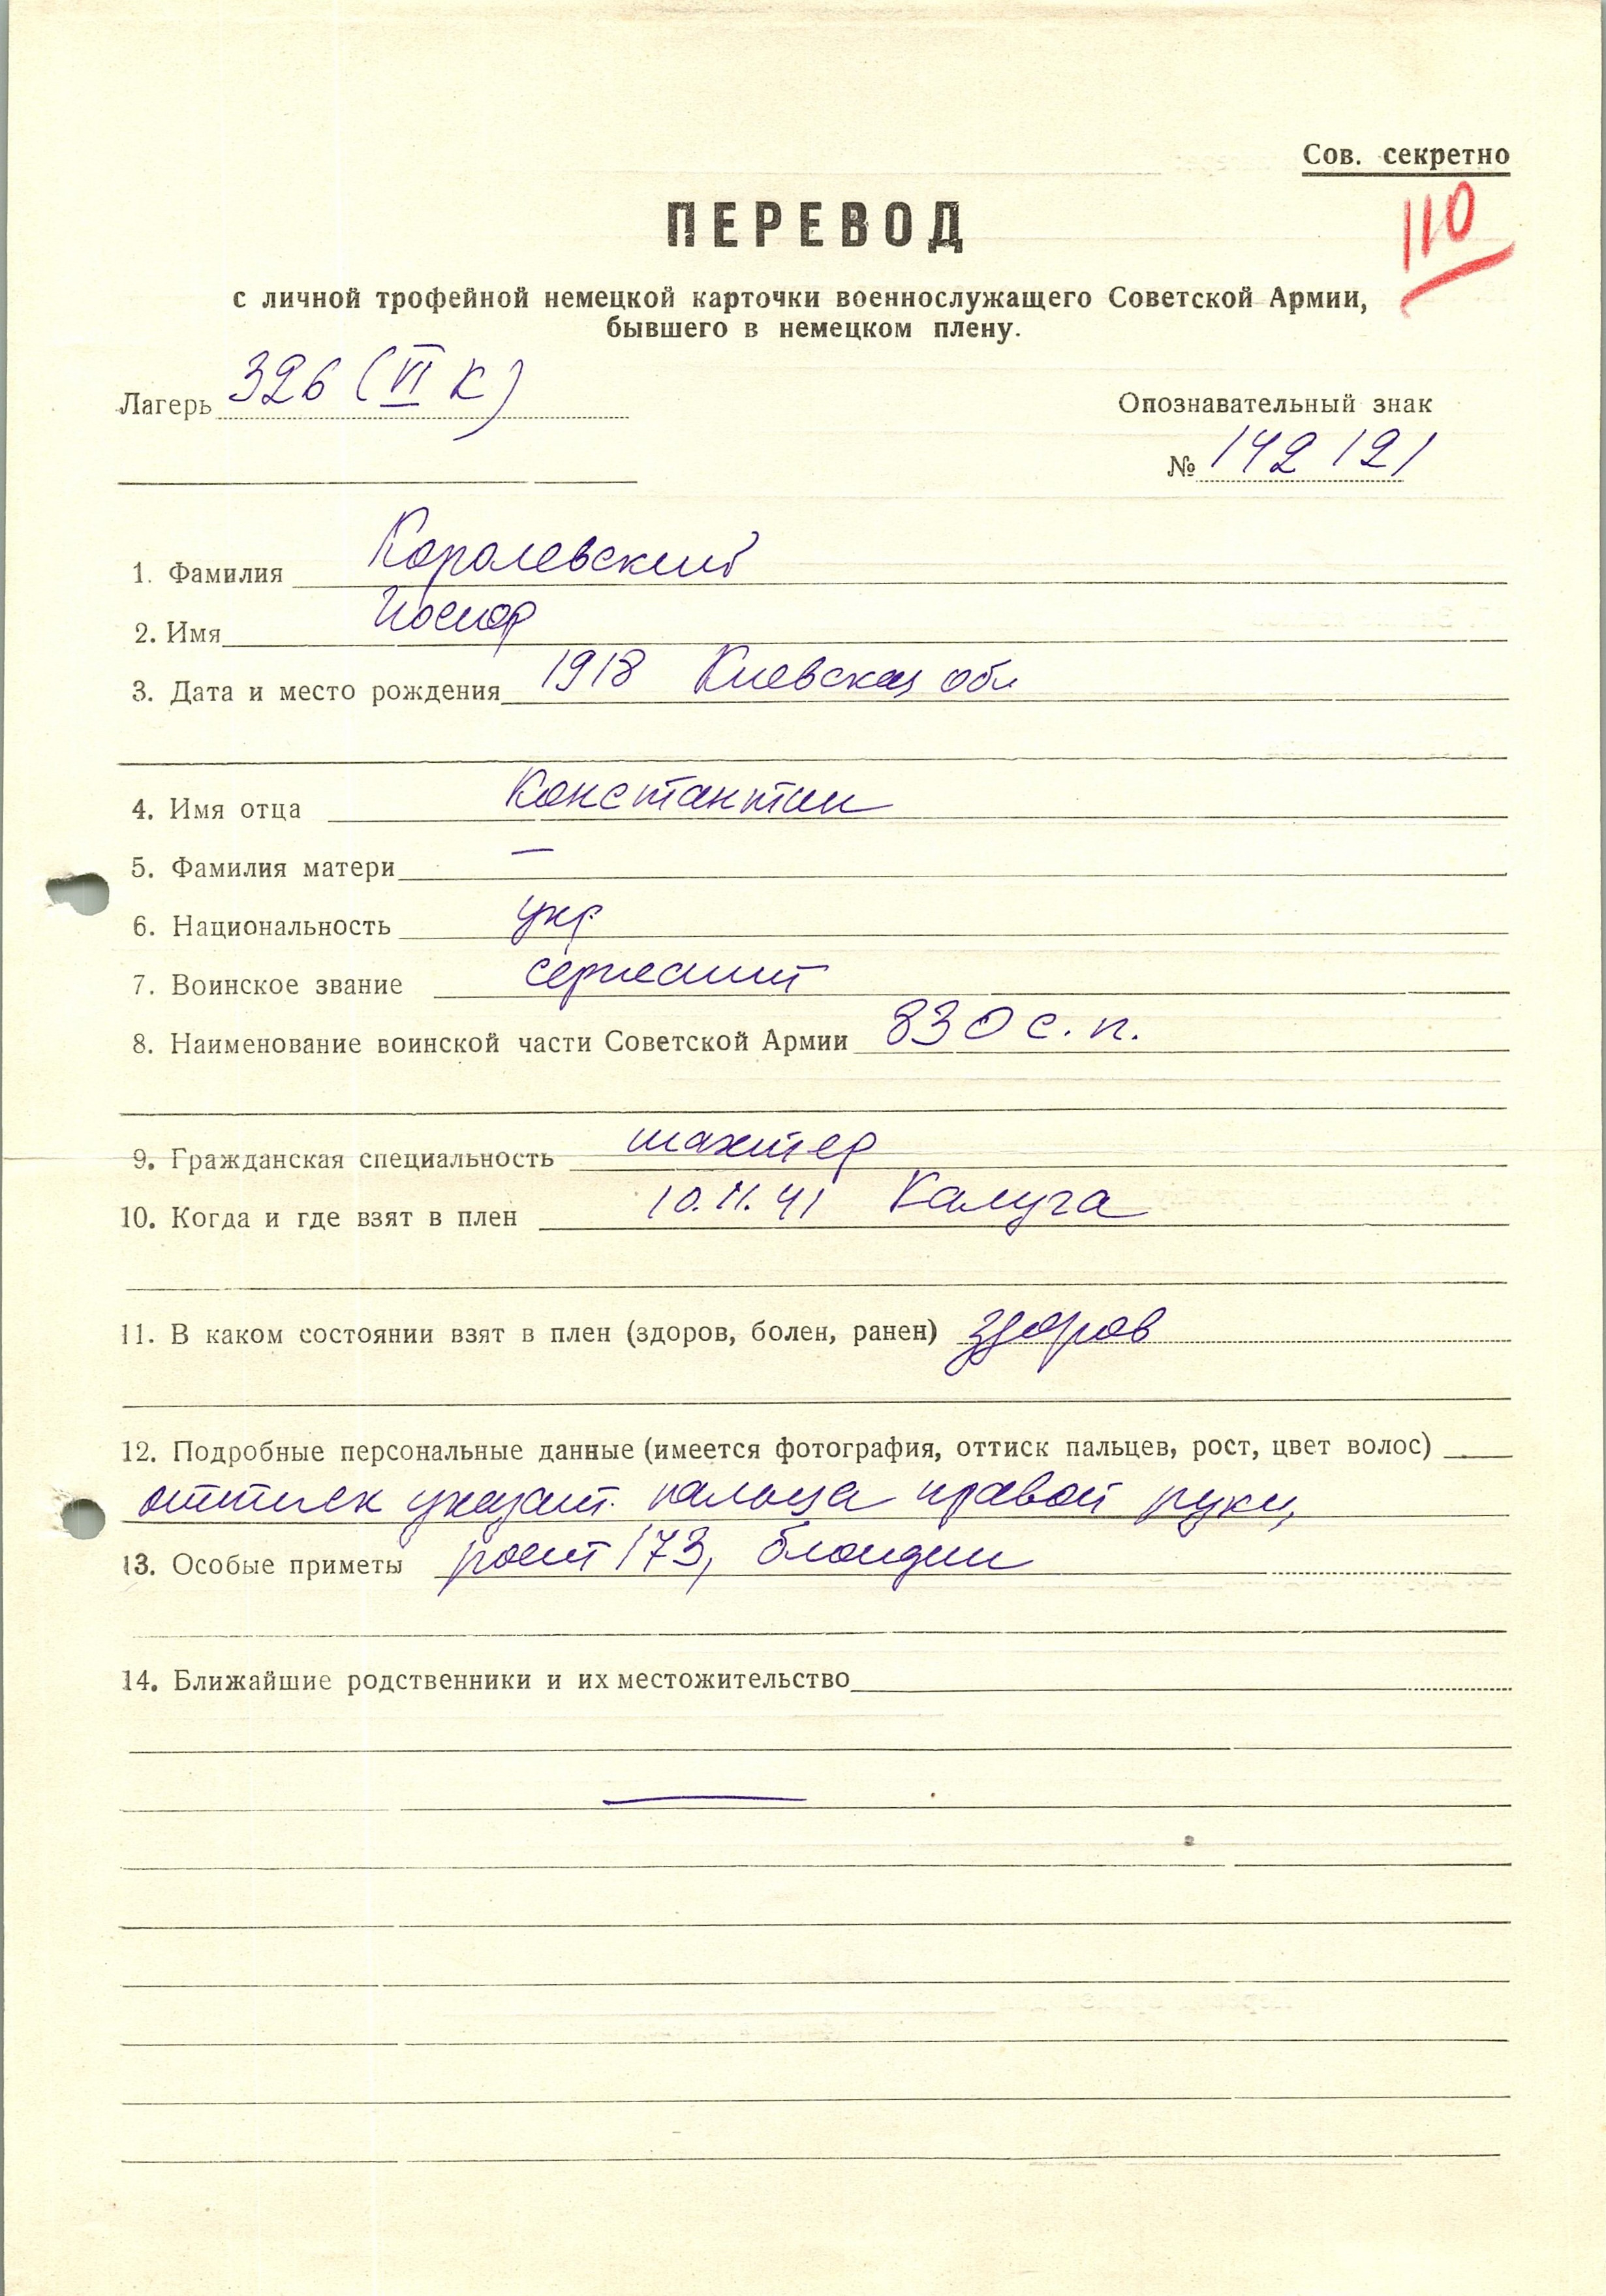 Сов. секретно
110
ПЕРЕВОД
с личной трофейной немецкой карточки военнослужащего Советской Армии,
бывшего в немецком плену.
Лагерь 326 (VI К)
Опознавательный знак
№ 142121
1. Фамилия Королевский
2. Имя Иосиф
3. Дата и место рождения 1918 Киевская обл
4. Имя отца Константин
5. Фамилия матери —
6. Национальность укр
7. Воинское звание сержант
8. Наименование воинской части Советской Армии 830 с. п.
9. Гражданская специальность шахтер
10. Когда и где взят в плен 10.11.41 Калуга
11. В каком состоянии взят в плен (здоров, болен, ранен) здоров
12. Подробные персональные данные (имеется фотография, оттиск пальцев, рост, цвет волос)
оттиск указат. пальца правой руки,
13. Особые приметы рост 173, блондин
14. Ближайшие родственники и их местожительство
—